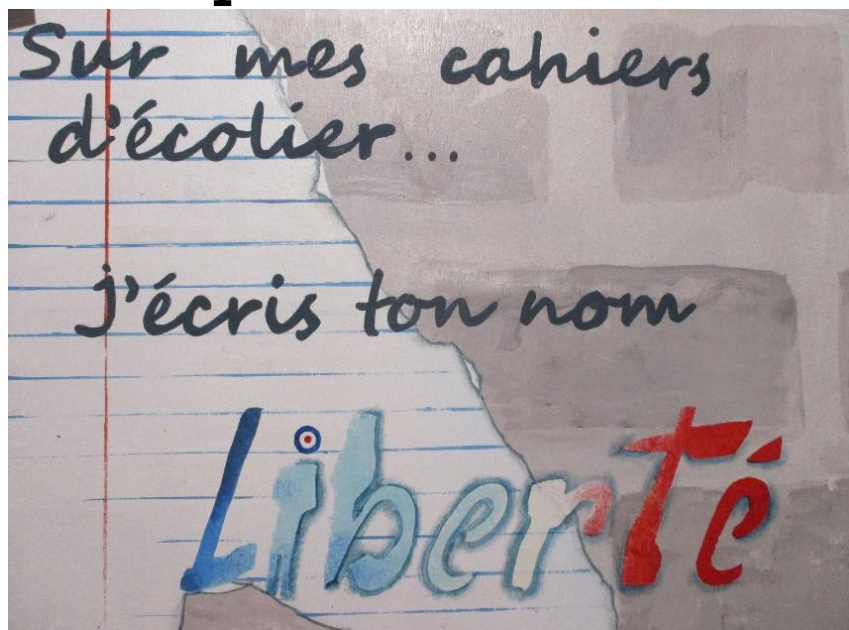 Sur mes cahiers
d'écolier...
j'écris ton nom
Liberté